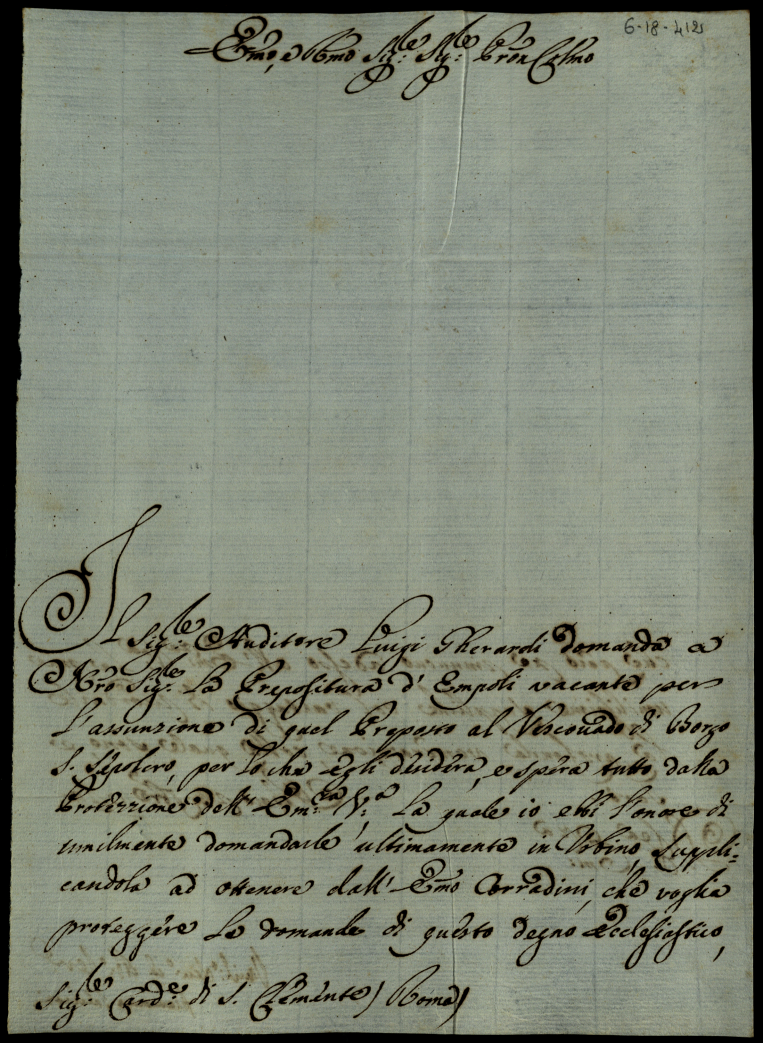 6-18-412
Emo, e Rmo Sig:le Sig:le Pron Colmo
Il Sig:le Auditore Luigi Gherardi domanda a
Nro Sig:le la Prepositura d'Empoli vacante per
l'assunzione di quel Proposto al Vescovado di Borgo
S. Sepolcro, per lo che egli desidera, e spera tutto dalla
Protezzione dell'Em:za V:a la quale io ebbi l'onore di
umilmente domandarle ultimamente in Urbino, suppli=
candola ad ottenere dall'Emo Corradini, che voglia
proteggere le domande di questo degno Ecclesiastico,
Sig:le Card:e di S. Clemente) Roma)